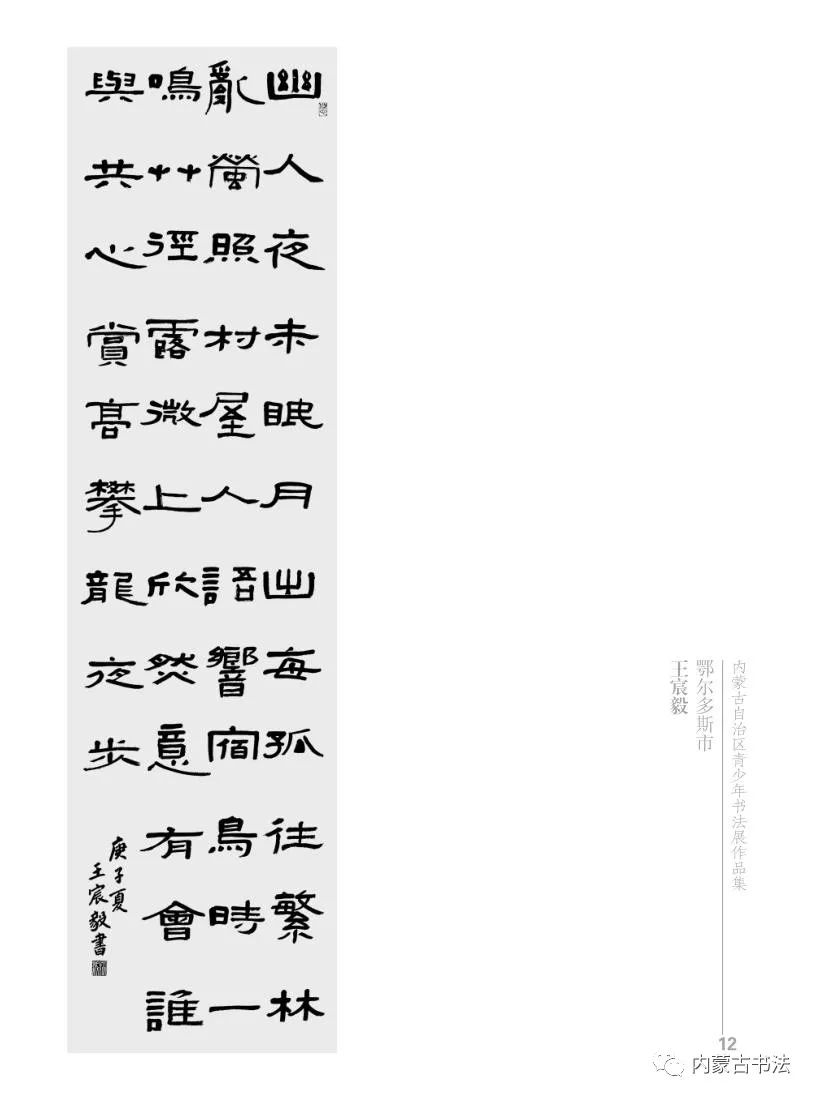 幽人夜未眠月出每孤往繁林
亂螢照村屋人語響宿鳥時一
鳴艸徑露微上欣然意有會誰
與共心賞高攀龍夜步
庚子夏
王宸毅書
内蒙古自治区青少年书法展作品集
鄂尔多斯市
王宸毅
12
内蒙古书法